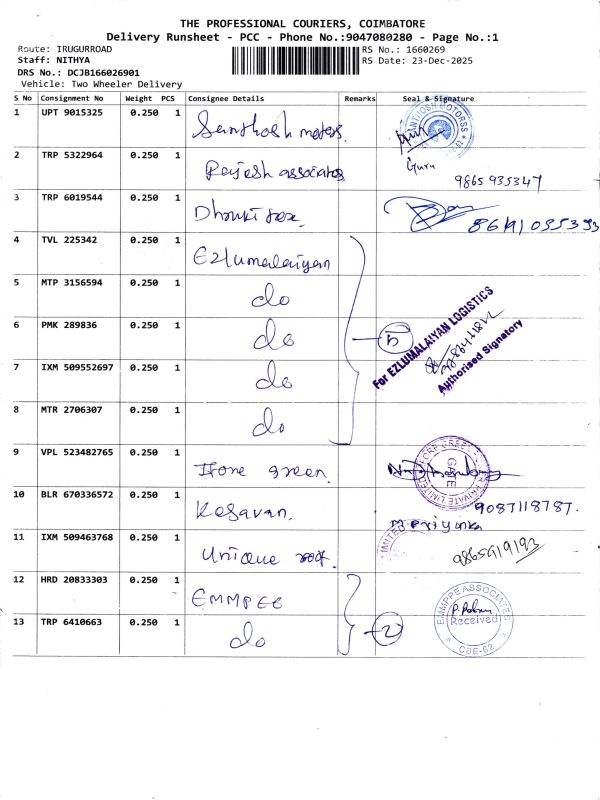 THE PROFESSIONAL COURIERS, COIMBATORE
Delivery Runsheet - PCC - Phone No.:9047080280 - Page No.:1
Route: IRUGURROAD RS No.: 1660269
Staff: NITHYA RS Date: 23-Dec-2025
DRS No.: DCJB166026901
Vehicle: Two Wheeler Delivery
S No Consignment No Weight PCS Consignee Details Remarks Seal & Signature
1 UPT 9015325 0.250 1 Santhosh motors.
Guru
2 TRP 5322964 0.250 1 Rajesh associates 9865935347
3 TRP 6019544 0.250 1
4 TVL 225342 0.250 1 Ezlumalaiyan
5 MTP 3156594 0.250 1 do
6 PMK 289836 0.250 1 do 5
For EZLUMALAIYAN LOGISTICS
Authorised Signatory
7 IXM 509552697 0.250 1 do
8 MTR 2706307 0.250 1 do
9 VPL 523482765 0.250 1 green
GATE
PRIVATE LIMITED
10 BLR 670336572 0.250 1 Kesavan. 9087118787.
M. Priyanka
11 IXM 509463768 0.250 1 Unique roof.
LIMITED
12 HRD 20833303 0.250 1 EMMPEE
13 TRP 6410663 0.250 1 do 2
EMMPPE ASSOCIATES
Received
CBE-62